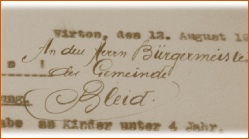 Virton, den 12. August 19
An den Herrn Bürgermeister
s !
der Gemeinde
Bleid.
ung:
be an Kinder unter 4 Jahr.